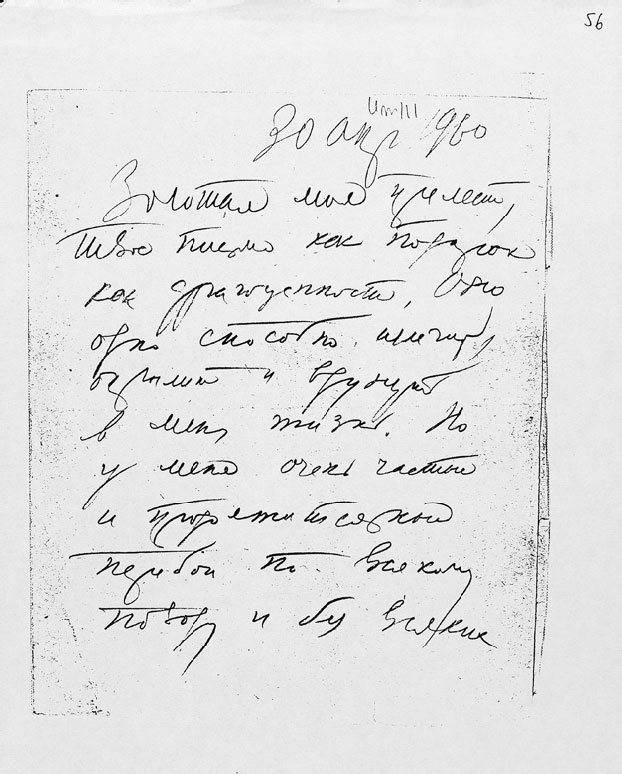 56
30 апр 1960
Золотая моя прелесть,
твое письмо как подарок
как драгоценность. Оно
одно способно излечить,
и вдунуть
в меня жизнь. Но
у меня очень частые
и продолжительные
перебои по всякому
поводу и без всяких